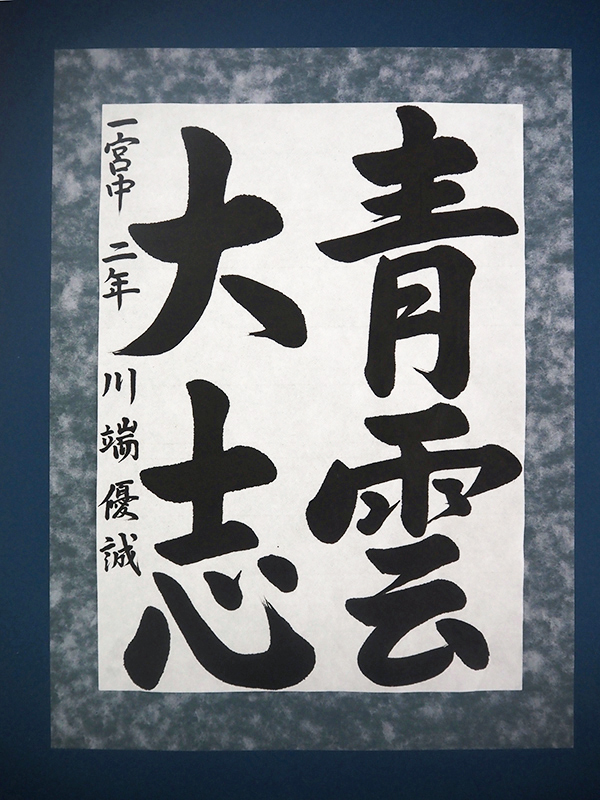 青雲
大志
一宮中 二年 川端優誠